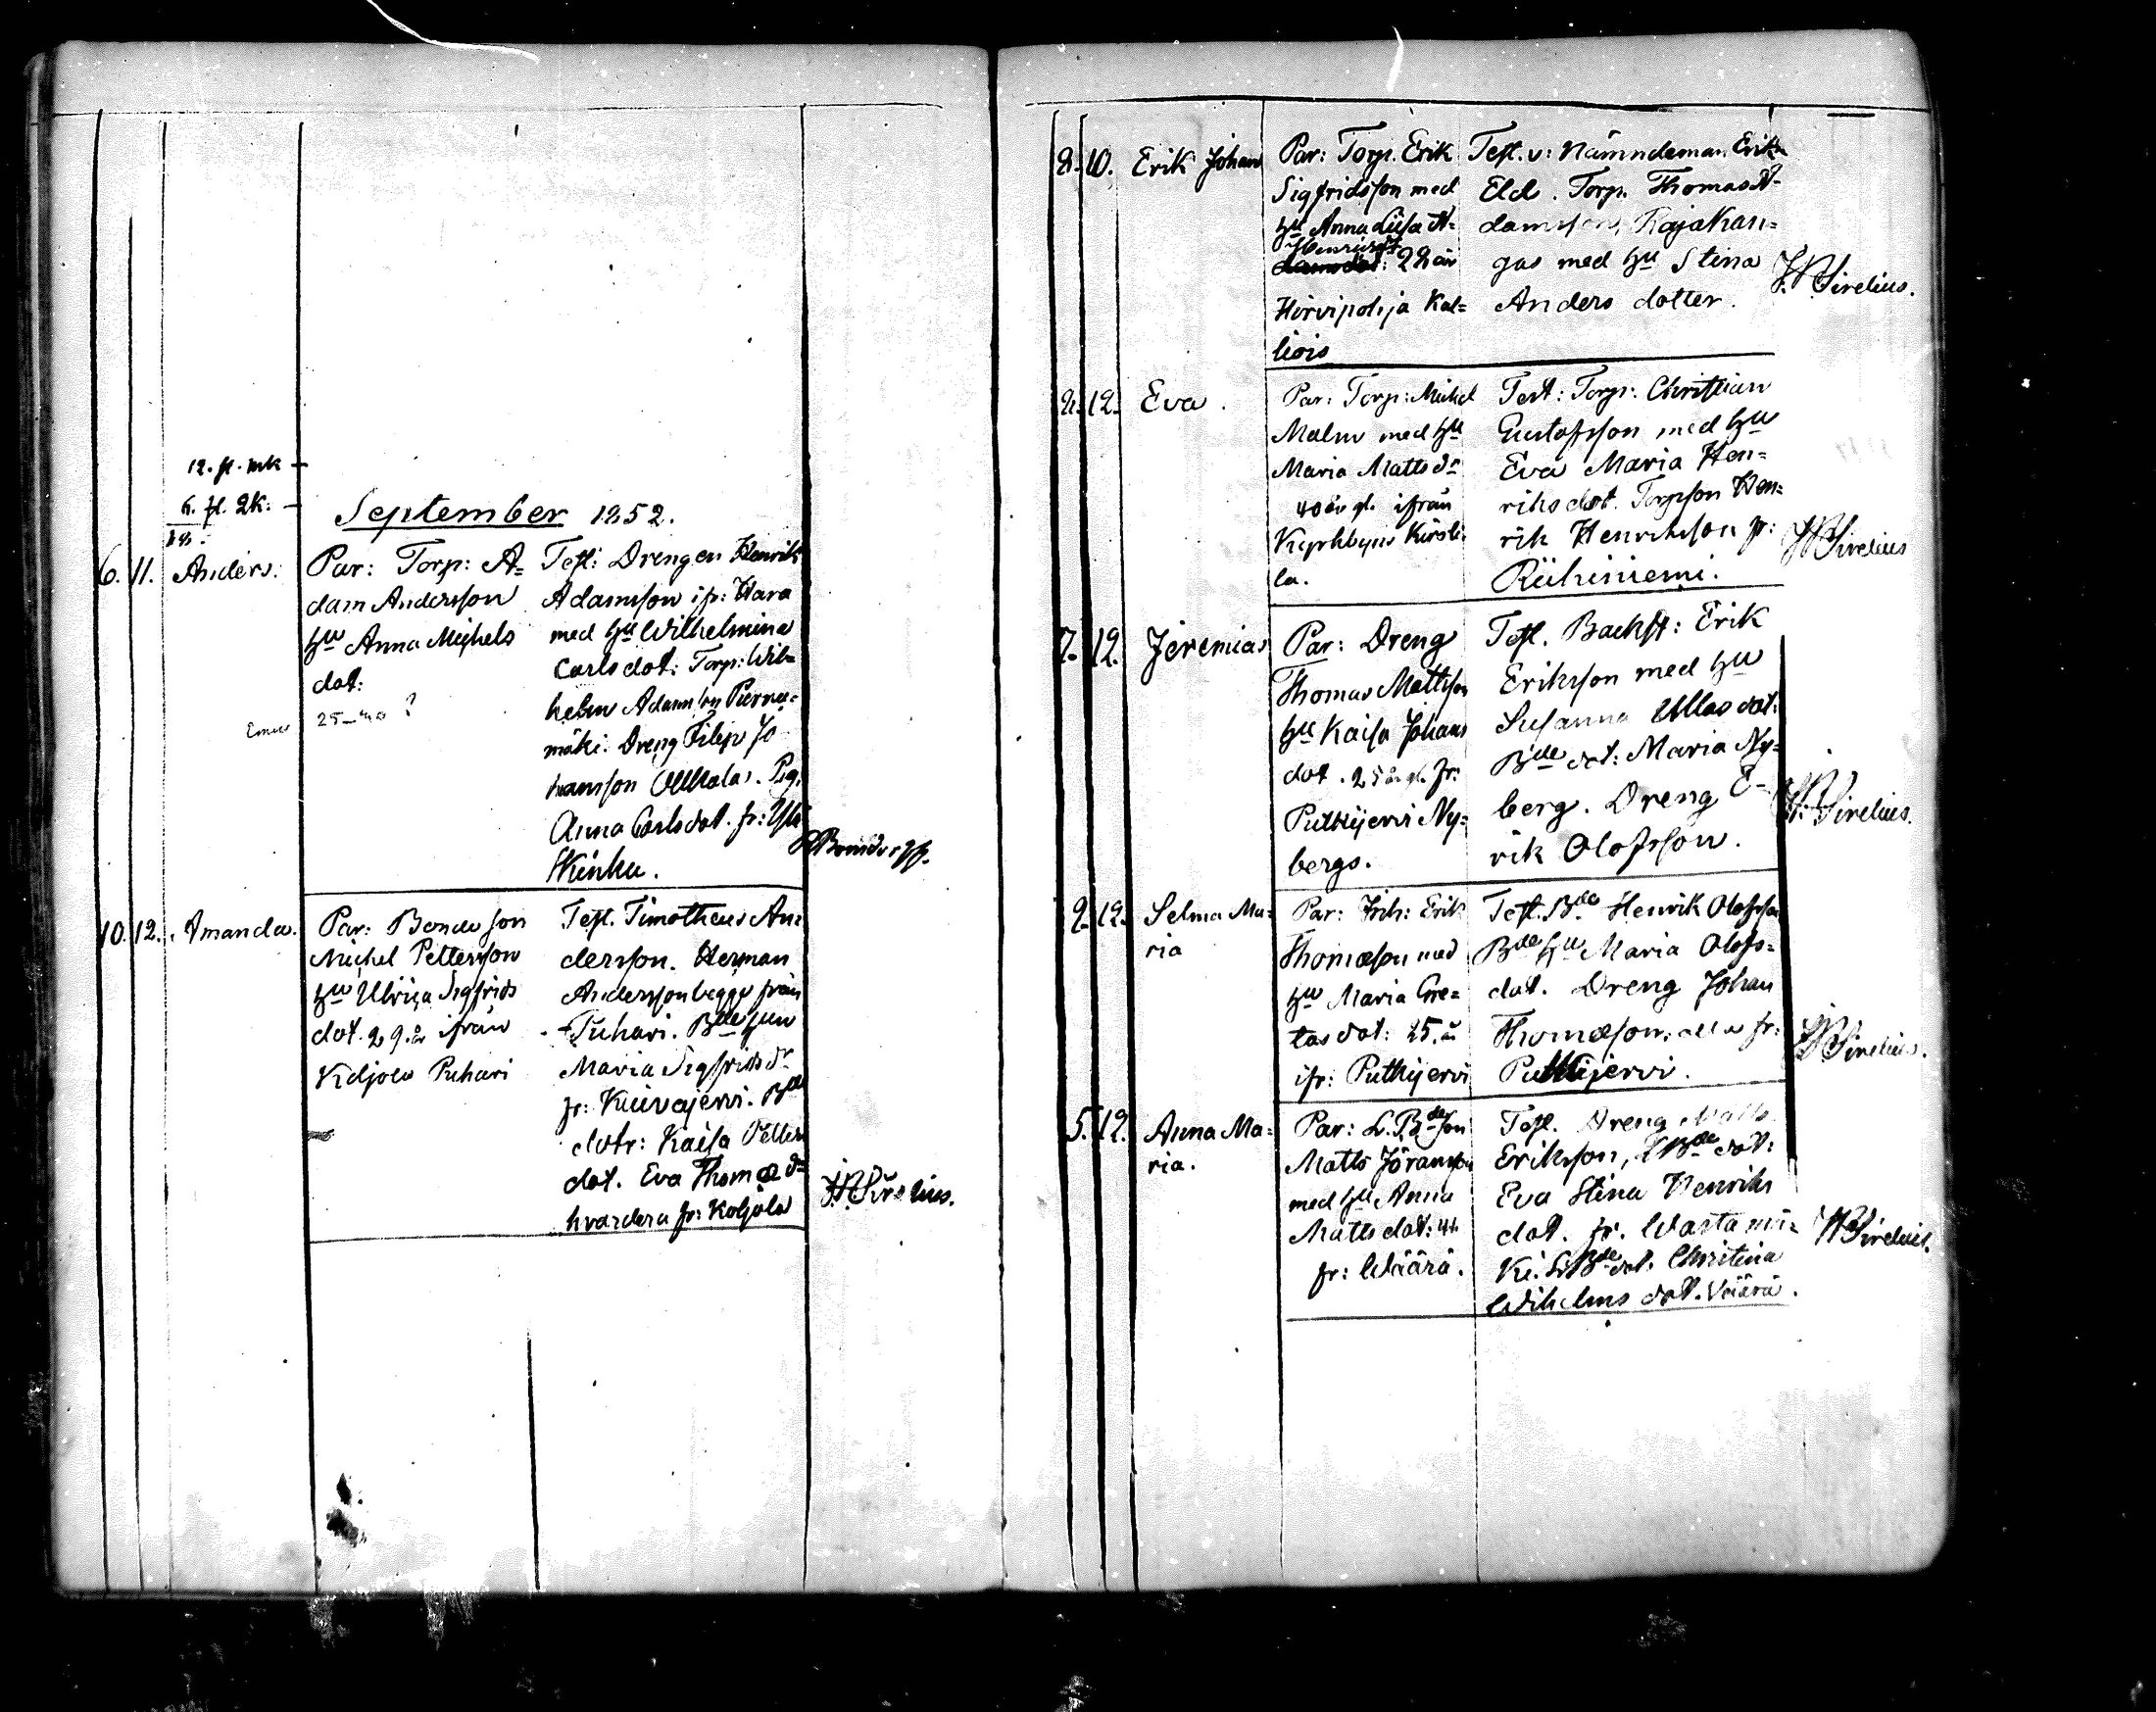 12. fl. mk -
6. fl. 2k: -
18.
September 1852.
6. 11. Anders.
Par: Torp: A=
dam Andersson
hu Anna Michels
dot:
25
Test: Drengen Henrik
Adamsson ifr: Hara
med hu Wilhelmina
Carlsdot: Torp: Wil=
helm Adamsson
mäki. Dreng Filip Jo
hansson Ollkala. Pig.
Anna Carlsdot. fr: Yli
Skinku.
10. 12. Amanda.
Par: Bondeson
Michel Pettersson
hu Ulrica Sigfrids
dot. 29. å ifrån
Koljola Puhari
Test. Timotheus An=
dersson. Herman
Andersson begge från
Puhari. Bde hun
Maria Sigfrids dr
fr: Kuivajervi. Bde
dotr: Kaisa Petters
dot. Eva Thomæ dr
hvardera fr: Koljola
Sirelius.
8. 10. Erik Johan
Par: Torp. Erik
Sigfridsson med
hu Anna Liisa A=
Henricsdt
damsdot: 28 år
Hirvipohja Kal=
liois
Test. v: Nämndeman Erik
Eld. Torp. Thomas A=
damsson, Rajakan=
gas med hu Stina
Anders dotter.
Sirelius.
12. Eva.
Par: Torp: Michel
Malm med hu
Maria Matts dr
40 år gl. ifrån
Kyrkbyns Kirsti
la.
Test: Torp: Christian
Gustafsson med hu
Eva Maria Hen=
riksdot. Torpson Hen=
rik Henriksson fr:
Riihiniemi.
Sirelius
7. 12. Jeremias
Par: Dreng
Thomas Mattsson
hu Kaisa Johans
dot. 25 år gl. fr:
Putkijervi Ny=
bergs.
Test. Backst: Erik
Eriksson med hu
Susanna Ullas dot:
Bde dot: Maria Ny=
berg. Dreng E=
rik Olofsson.
Sirelius.
9. 12. Selma Ma=
ria
Par: Erik
Thomasson med
hu Maria Gre=
tas dot: 25. å
ifr: Putkijervi
Test. Bde Henrik Olofsson
Bde hu Maria Olofs=
dot. Dreng Johan
Thomasson, alla fr:
Putkijervi.
Sirelius.
5. 12. Anna Ma=
ria.
Par: L. Bdeson
Matts Jöransson
med hu Anna
Matts dot: 44
fr: Wäärä.
Test. Dreng Matts
Eriksson, L Bde dot:
Eva Stina Henriks
dot. fr. Wasta mä=
ki. L Bde dot. Christina
Wilhelms dot. Väärä.
Sirelius.